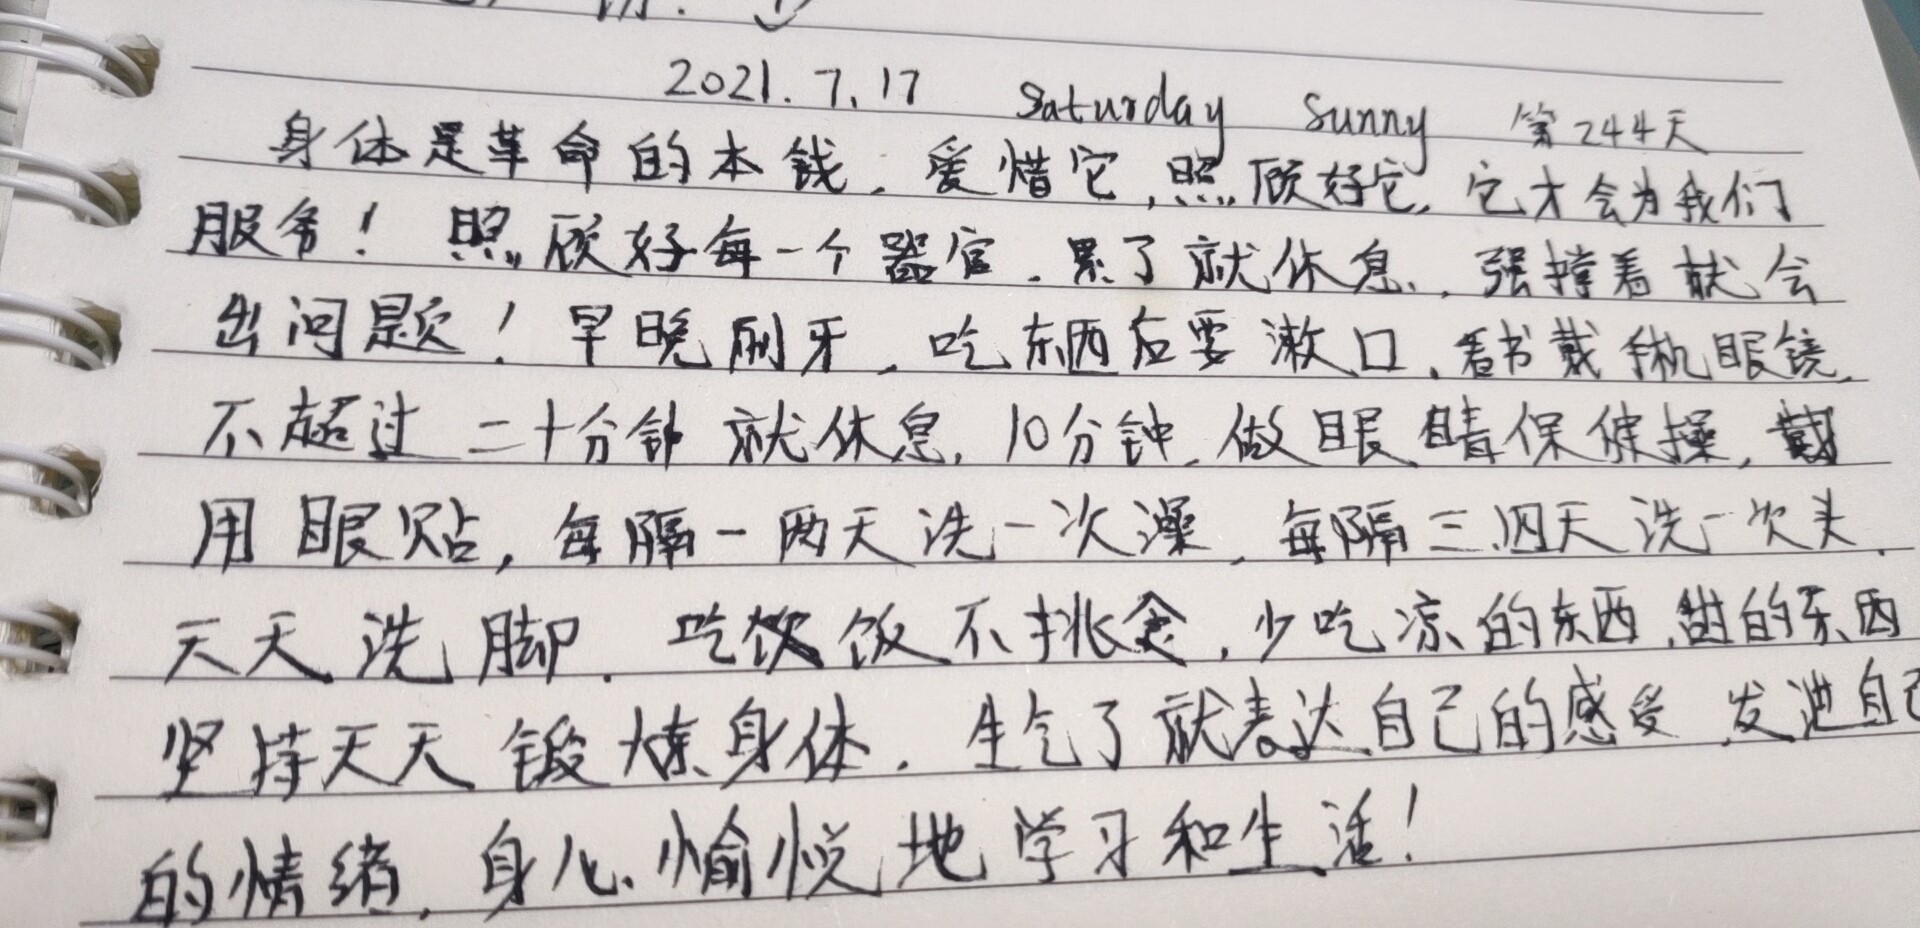 2021.7.17 Saturday Sunny 第244天
身体是革命的本钱,爱惜它,照顾好它,它才会为我们
服务!照顾好每一个器官.累了就休息,强撑着就会
出问题!早晚刷牙,吃东西后要漱口,看书戴手机眼镜,
不超过二十分钟就休息,10分钟,做眼睛保健操,戴
用眼贴,每隔一两天洗一次澡,每隔三四天洗一次头.
天天洗脚.吃饮饭不挑食,少吃凉的东西,甜的东西
坚持天天锻炼身体.生气了就表达自己的感受,发泄自己
的情绪,身心愉悦地学习和生活!